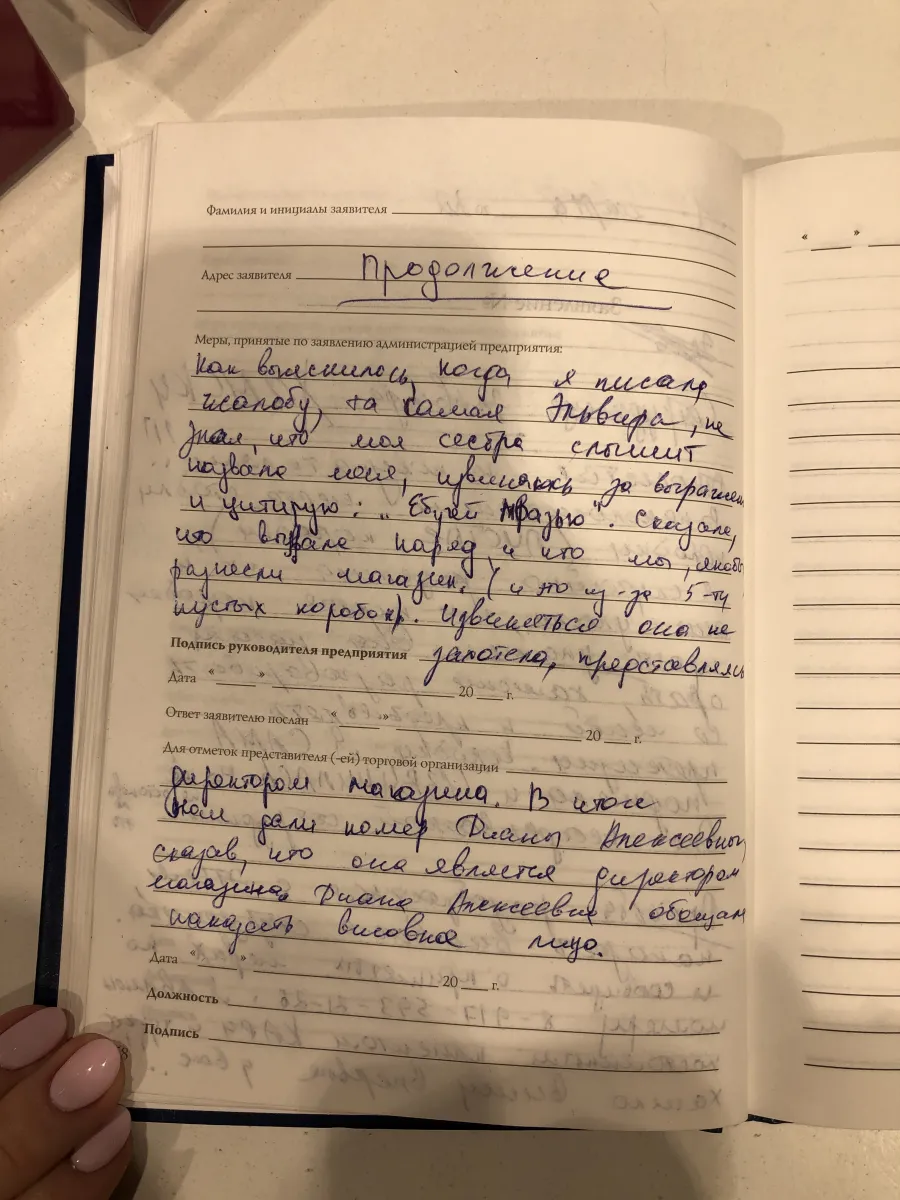 Фамилия и инициалы заявителя
Адрес заявителя Продолжение
Меры, принятые по заявлению администрацией предприятия:
Как выяснилось, когда я писала
жалобу, та самая Эльвира, не
зная, что моя сестра слышит
назвала меня, извиняюсь за выражен
и цитирую: „Ебучей мразью". Сказала,
что вызвала наряд и что мы, якобы
разнесли магазин. (и это из-за 5-ти
пустых коробок). Извиняться она не
Подпись руководителя предприятия захотела, представляясь
Дата "___" 20 г.
Ответ заявителю послан "___" 20 г.
Для отметок представителя (-ей) торговой организации
директором магазина. В итоге
нам дали номер Дианы Алексеевны,
сказав, что она является директором
магазина. Диана Алексеевна обещала
наказать виновное лицо.
Дата "___" 20 г.
Должность
Подпись